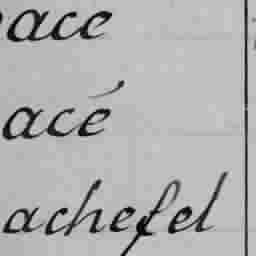 ace
acé
achefel